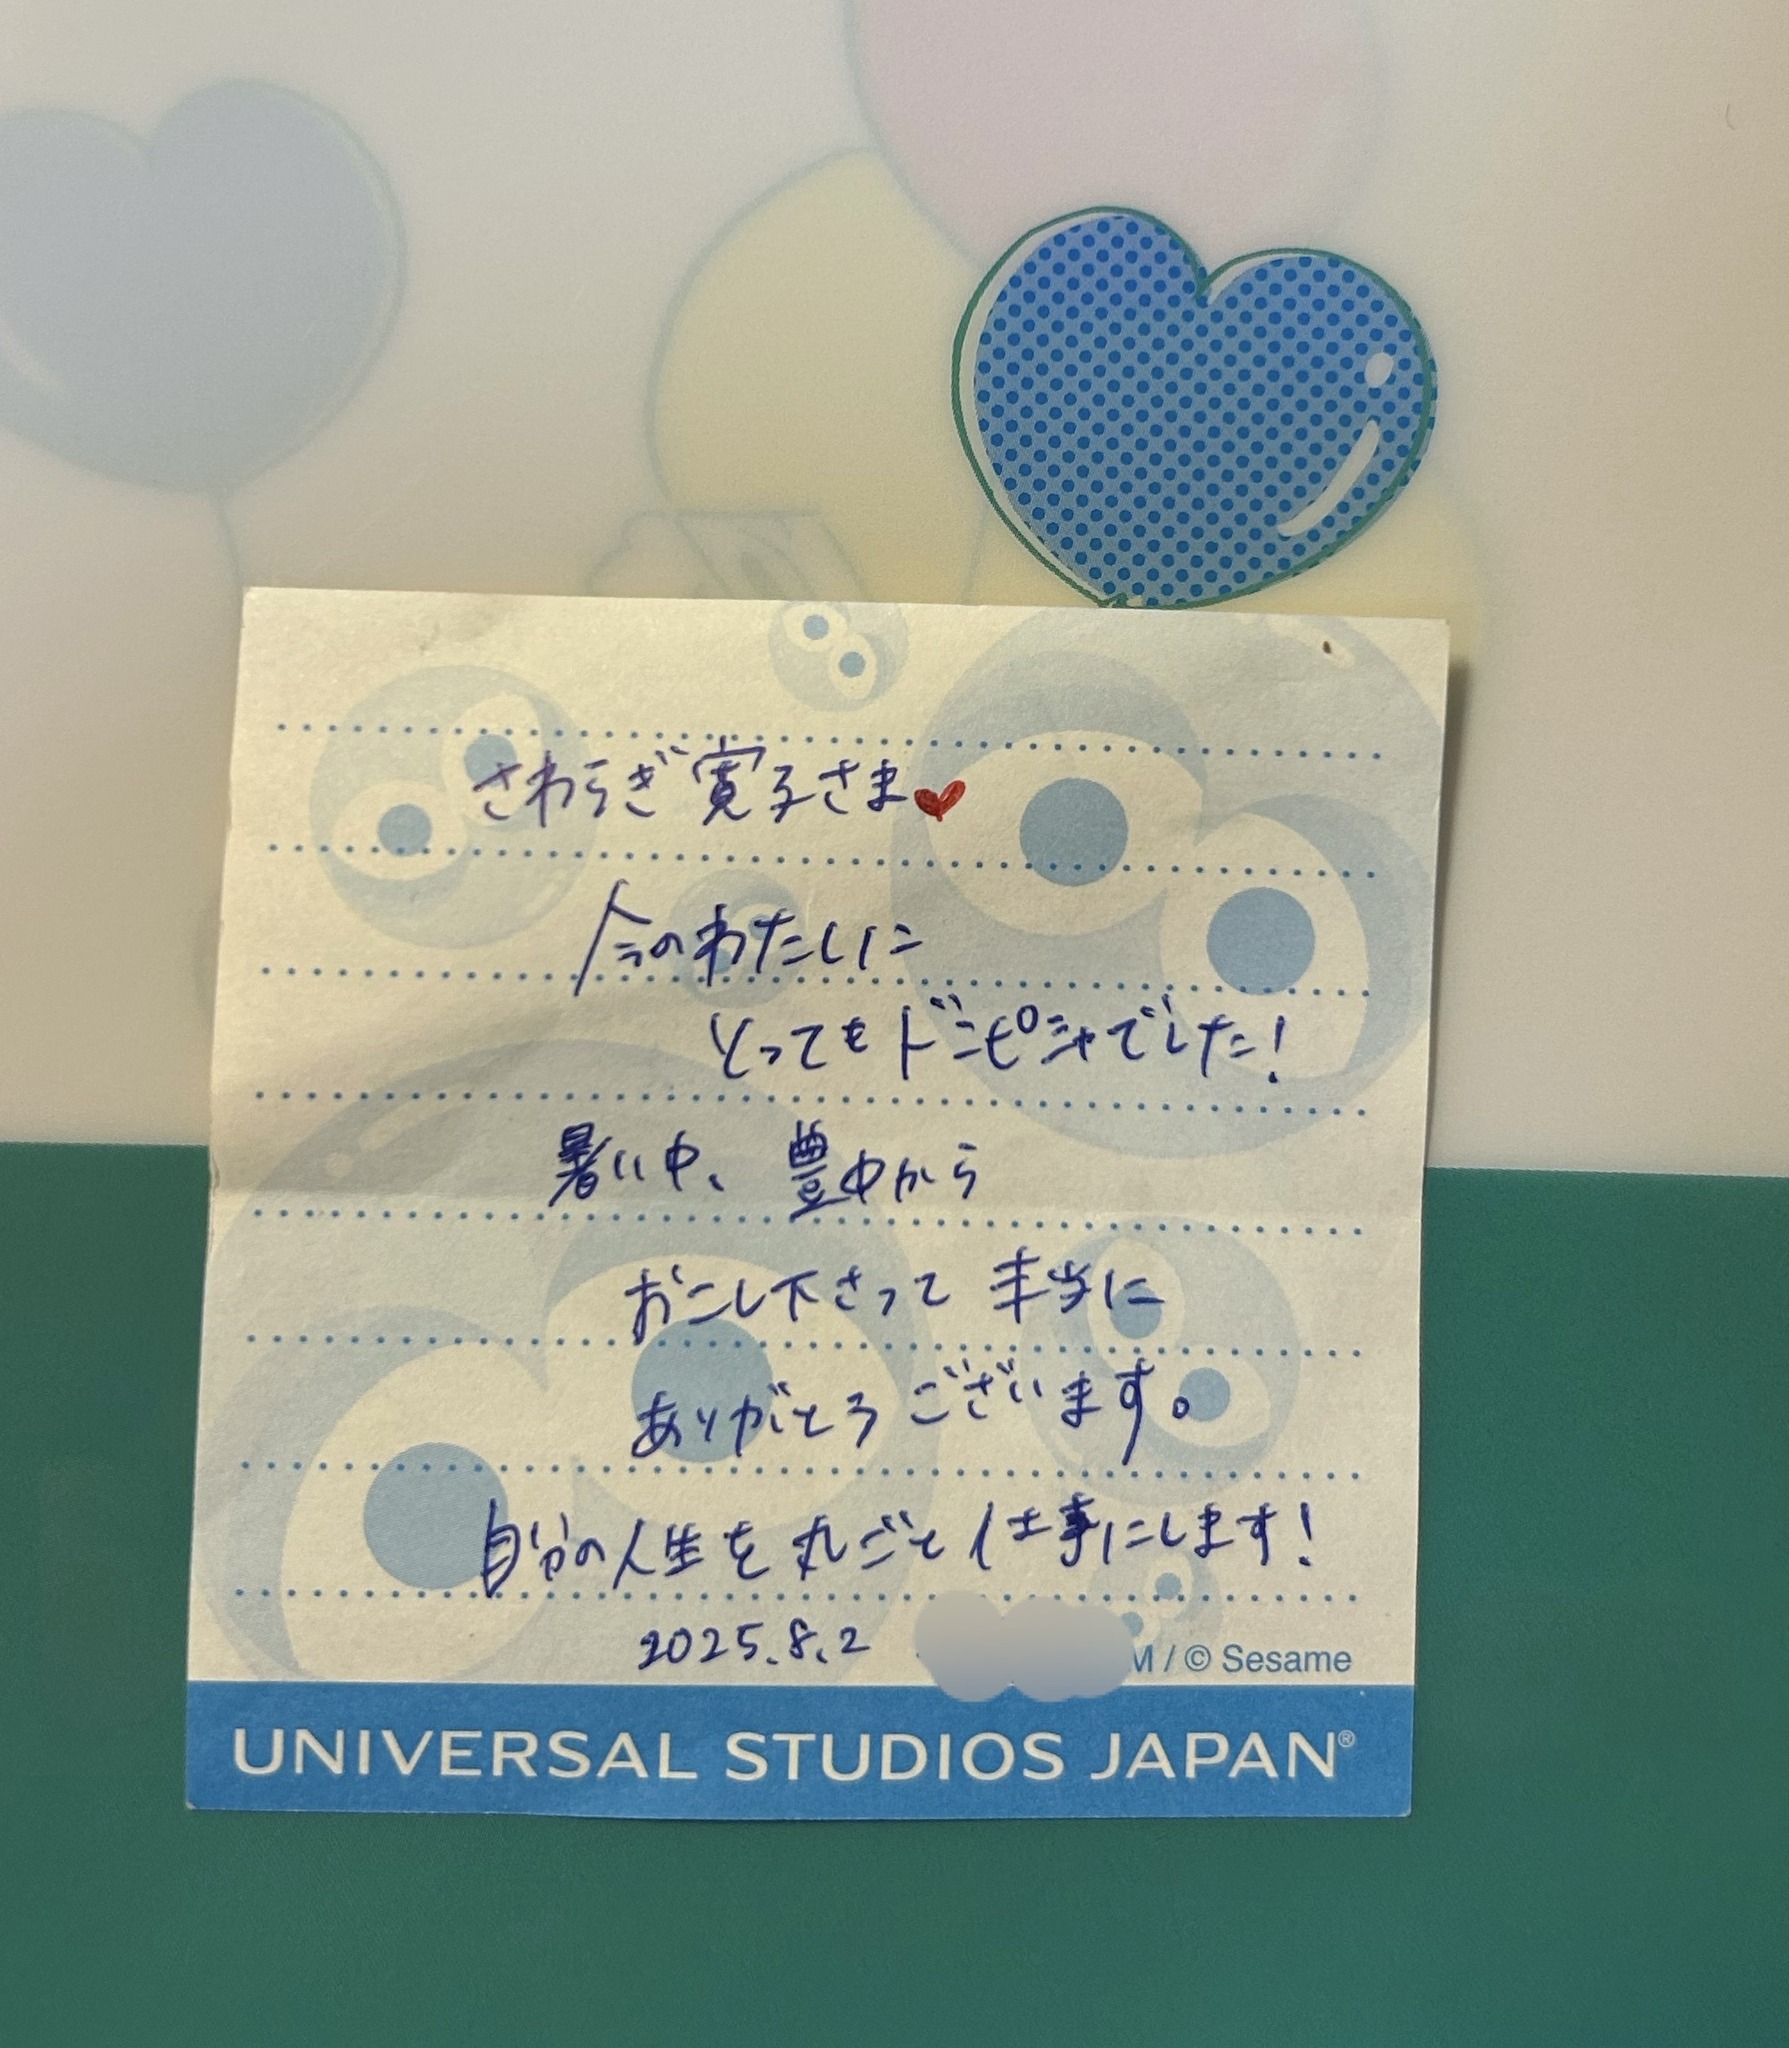 さわらぎ寛子さま
今のわたしに
とってもドンピシャでした!
暑い中、豊中から
おこし下さって 本当に
ありがとうございます。
自分の人生を丸ごと仕事にします!
2025.8.2
M / © Sesame
UNIVERSAL STUDIOS JAPAN®